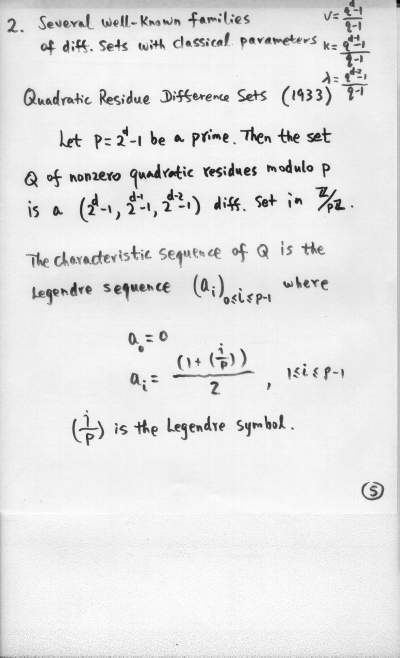 2. Several well-known families
of diff. sets with classical parameters
v = (q^d - 1)/(q - 1)
k = (q^{d-1} - 1)/(q - 1)
λ = (q^{d-2} - 1)/(q - 1)
Quadratic Residue Difference Sets (1933)
Let p = 2^d - 1 be a prime. Then the set
Q of nonzero quadratic residues modulo p
is a (2^d - 1, 2^{d-1} - 1, 2^{d-2} - 1) diff. set in ℤ/pℤ.
The characteristic sequence of Q is the
Legendre sequence (a_i)_{0≤i≤p-1} where
a_0 = 0
a_i = (1 + (i/p))/2 , 1≤i≤p-1
(i/p) is the Legendre symbol.
5